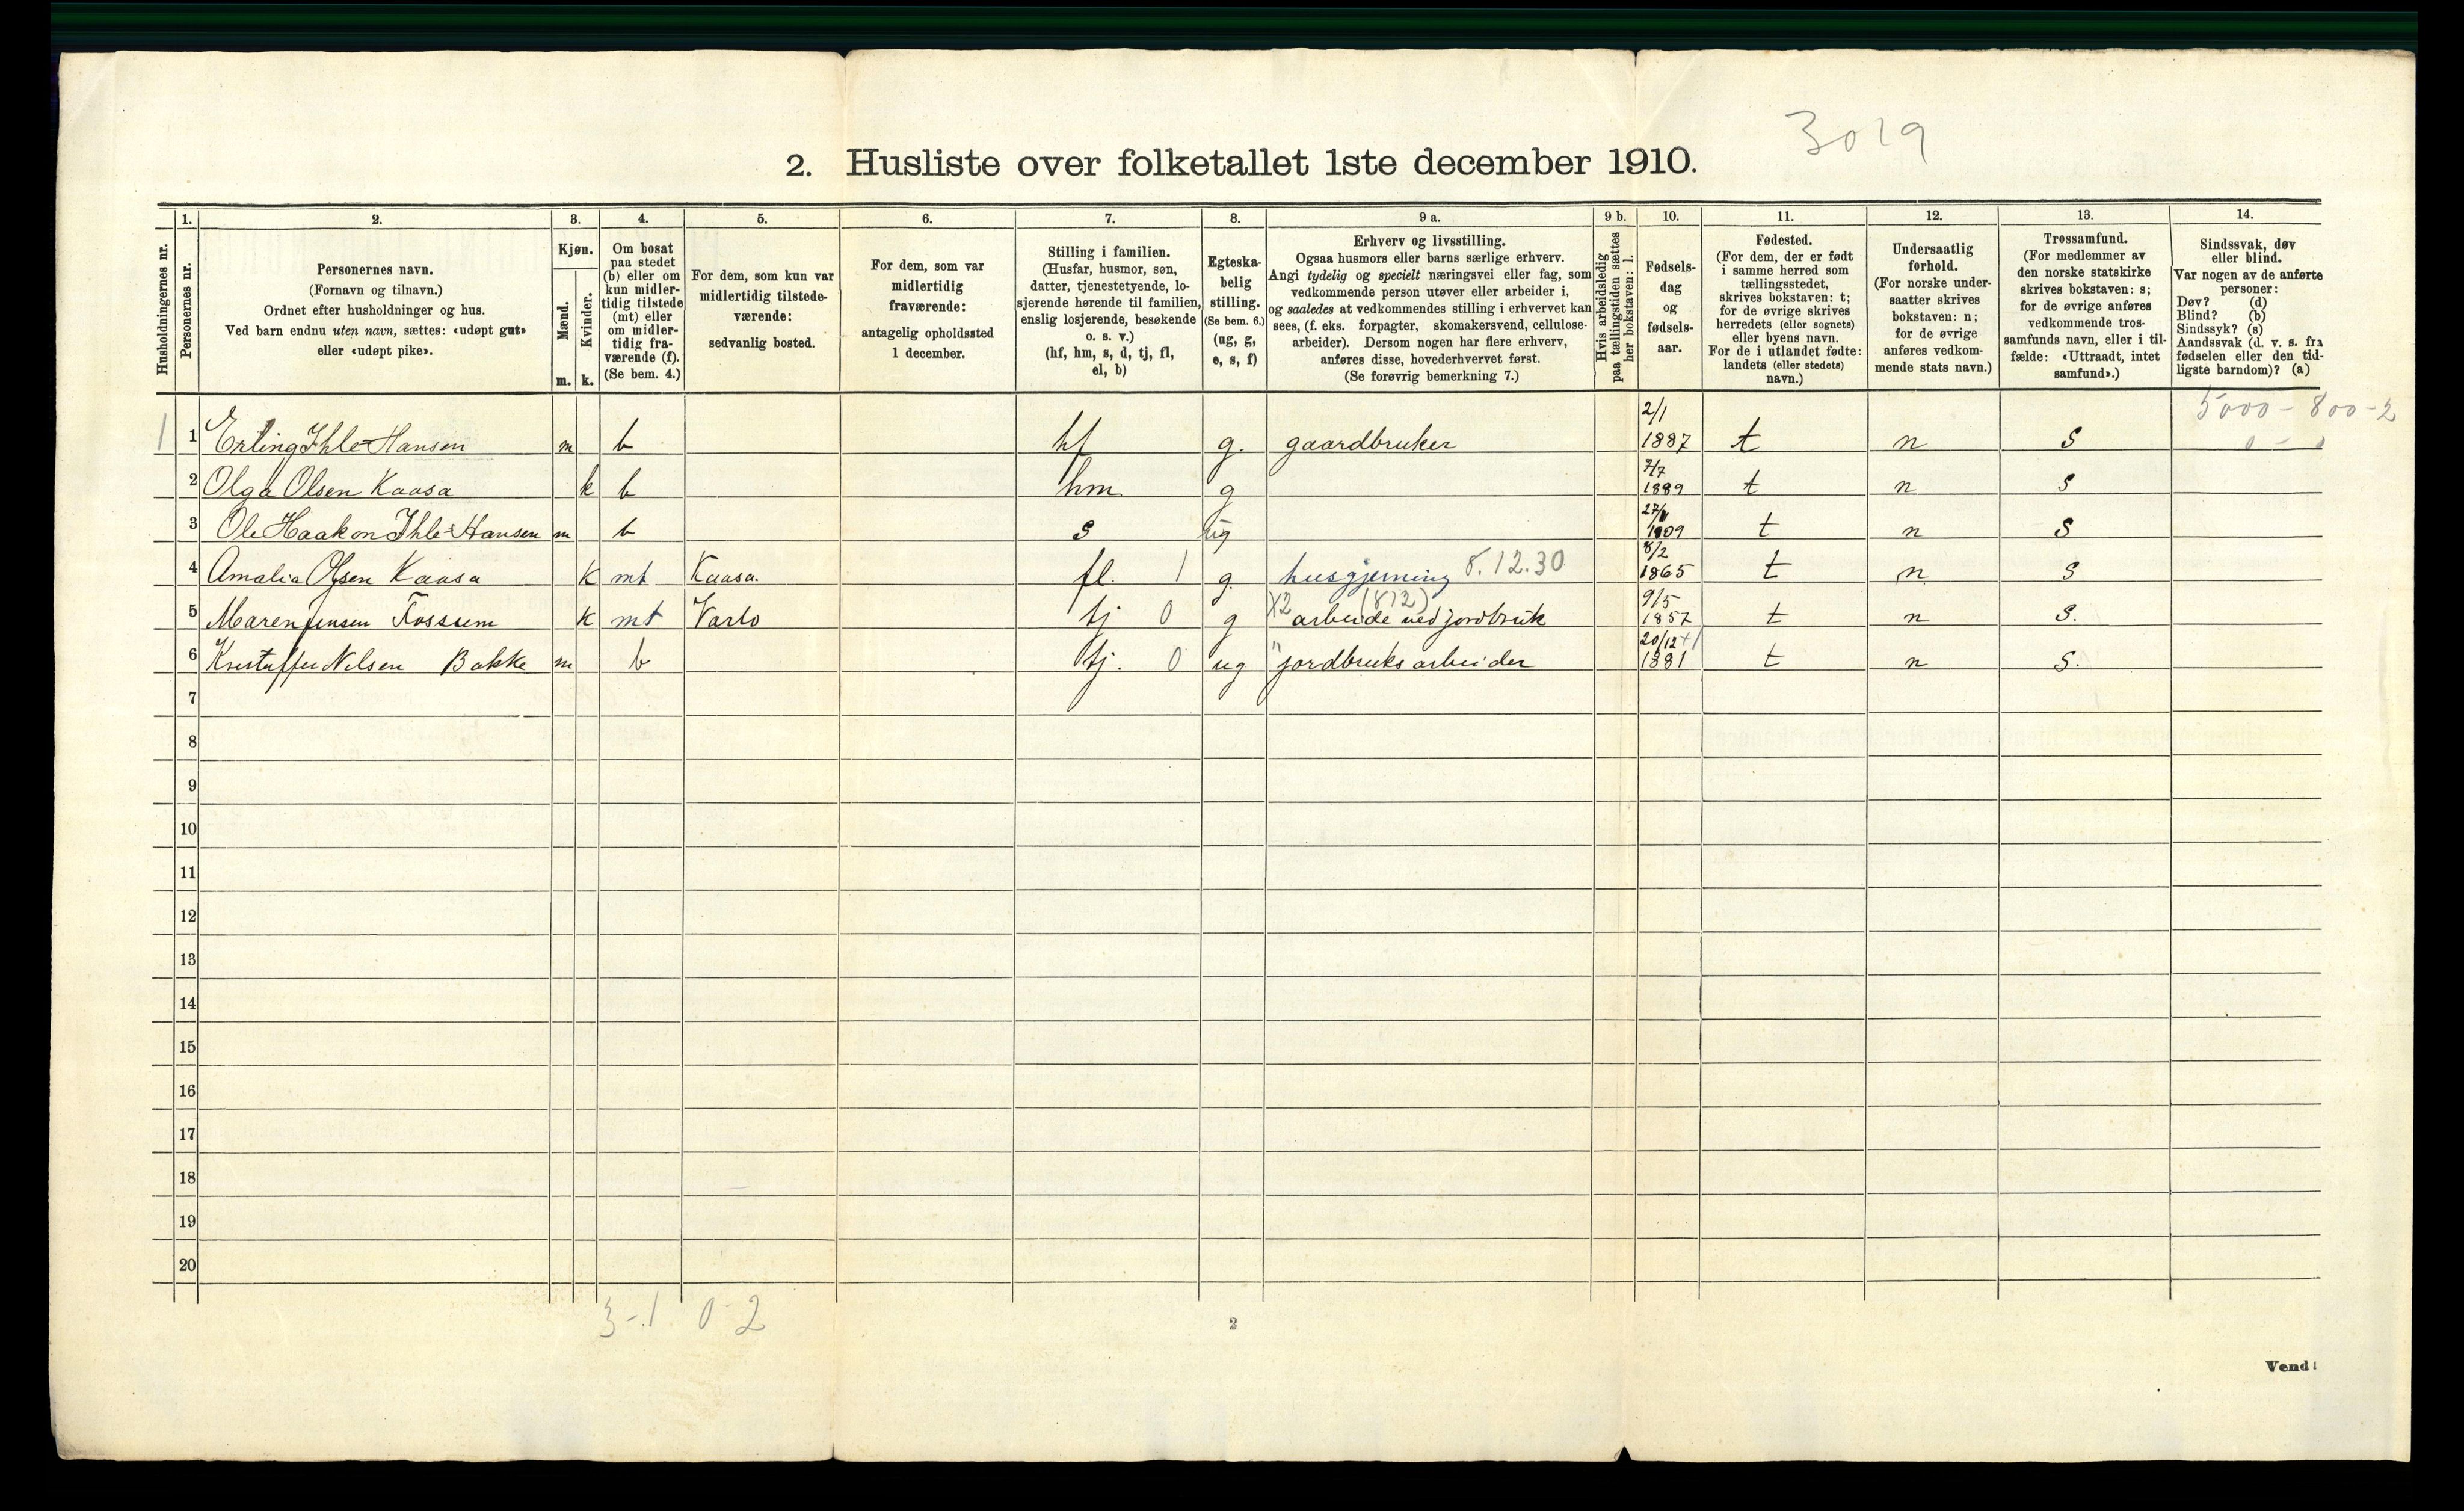 3019
2. Husliste over folketallet 1ste december 1910.
Husholdningernes nr.
1.
Personernes nr.
2.
Personernes navn.
(Fornavn og tilnavn.)
Ordnet efter husholdninger og hus.
Ved barn endnu uten navn, sættes: «udøpt gut»
eller «udøpt pike».
3.
Kjøn.
Mænd.
m.
Kvinder.
k.
4.
Om bosat
paa stedet
(b) eller om
kun midler-
tidig tilstede
(mt) eller
om midler-
tidig fra-
værende (f).
(Se bem. 4.)
5.
For dem, som kun var
midlertidig tilstede-
værende:
sedvanlig bosted.
6.
For dem, som var
midlertidig
fraværende:
antagelig opholdssted
1 december.
7.
Stilling i familien.
(Husfar, husmor, søn,
datter, tjenestetyende, lo-
sjerende hørende til familien,
enslig losjerende, besøkende
o. s. v.)
(hf, hm, s, d, tj, fl,
el, b)
8.
Egteska-
belig
stilling.
(Se bem. 6.)
(ug, g,
e, s, f)
9 a.
Erhverv og livsstilling.
Ogsaa husmors eller barns særlige erhverv.
Angi tydelig og specielt næringsvei eller fag, som
vedkommende person utøver eller arbeider i,
og saaledes at vedkommendes stilling i erhvervet kan
sees, (f. eks. forpagter, skomakersvend, cellulose-
arbeider). Dersom nogen har flere erhverv,
anføres disse, hovederhvervet først.
(Se forøvrig bemerkning 7.)
9 b.
Hvis arbeidsledig
paa tællingstiden sættes
her bokstaven: l.
10.
Fødsels-
dag
og
fødsels-
aar.
11.
Fødested.
(For dem, der er født
i samme herred som
tællingsstedet,
skrives bokstaven: t;
for de øvrige skrives
herredets (eller sognets)
eller byens navn.
For de i utlandet fødte:
landets (eller stedets)
navn.)
12.
Undersaatlig
forhold.
(For norske under-
saatter skrives
bokstaven: n;
for de øvrige
anføres vedkom-
mende stats navn.)
13.
Trossamfund.
(For medlemmer av
den norske statskirke
skrives bokstaven: s;
for de øvrige anføres
vedkommende tros-
samfunds navn, eller i til-
fælde: «Uttraadt, intet
samfund».)
14.
Sindssvak, døv
eller blind.
Var nogen av de anførte
personer:
Døv? (d)
Blind? (b)
Sindssyk? (s)
Aandssvak (d. v. s. fra
fødselen eller den tid-
ligste barndom)? (a)
5000 - 800 - 2
1 1 Erling Ihle-Hansen m b hf g. gaardbruker 2/1 1887 t n S
2 Olga Olsen Kaasa k b hm g 7/7 1889 t n S
3 Ole Haakon Ihle-Hansen m b s ug 1909 t n S
4 Amalia Olsen Kaasa k mt Kaasa. fl. 1 g. husgjerning 8.12.30 8/2 1865 t n S
5 Maren Jensen Fossum k mt Varlo tj 0 g X2 (812) arbeide ved jordbruk 9/5 1857 t n S.
6 Kristoffer Nilsen Bakke m b tj. 0 ug " jordbruksarbeider 20/12 1881 t n S.
7
8
9
10
11
12
13
14
15
16
17
18
19
20
3-1 0-2
2
Vend!